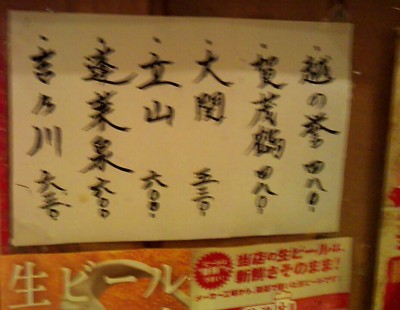 ・越の誉 四八〇
・賀茂鶴 四八〇
・大関 五三〇
・立山 六〇〇
・蓬莱泉 六〇〇
・吉乃川 六三〇
生ビール
当店の生ビールは、
新鮮さそのまま!